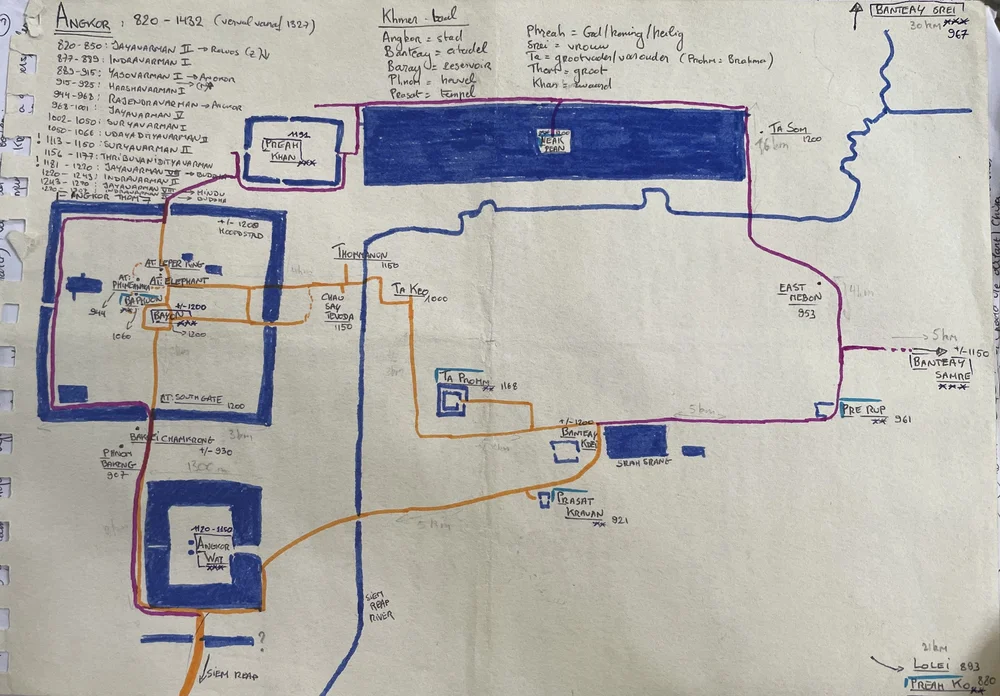 ANGKOR: 820 - 1432 (verval vanaf 1327)
820-850: JAYAVARMAN II → ROLUOS
877-889: INDRAVARMAN I
889-915: YASOVARMAN I → ANGKOR
915-925: HARSHAVARMAN I
944-968: RAJENDRAVARMAN → ANGKOR
968-1001: JAYAVARMAN V
1002-1050: SURYAVARMAN I
1050-1066: UDAYADITYAVARMAN II
! 1113-1150: SURYAVARMAN II
1156-1177: THRIBUVANIDITYAVARMAN
! 1181-1220: JAYAVARMAN VII → BUDDHA
1220-1243: INDRAVARMAN II
1243-1295: JAYAVARMAN VIII → HINDU
→ BUDDHA
Khmer-taal
Angkor = stad
Banteay = citadel
Baray = reservoir
Phnom = heuvel
Prasat = tempel
Phreah = God/koning/heilig
Srei = vrouw
Ta = grootvader/voorouder (Prohm = Brahma)
Thom = groot
Khan = zwaard
BANTEAY SREI
30 km xxx
967
1191
PREAH
KHAN
xxx
NEAK
PEAN
TA SOM
1200
16 km
ANGKOR THOM
+/- 1200
HOOFDSTAD
AT: LEPER KING
AT: ELEPHANT
944
BAPUON
1060
+/-1200
BAYON
xxx
1200
THOMMANON
1150
CHAU
SAY
TEVODA
1150
TA KEO
1000
EAST
MEBON
953
5km
+/-1150
BANTEAY
SAMRE
xxx
TA PROHM 1186
xx
AT: SOUTH GATE 1200
3km
BAKSEI CHAMKRONG
+/- 930
PHNOM
BAKENG
907
1300m
+/-1200
BANTEAY
KDEI
SRAH SRANG
5km
PRE RUP
961
xx
PRASAT
KRAVAN 921
xx
5km
1120-1150
ANGKOR
WAT
xxx
SIEM
REAP
RIVER
?
SIEM REAP
21km
LOLEI 893
PREAH KO 880
xx